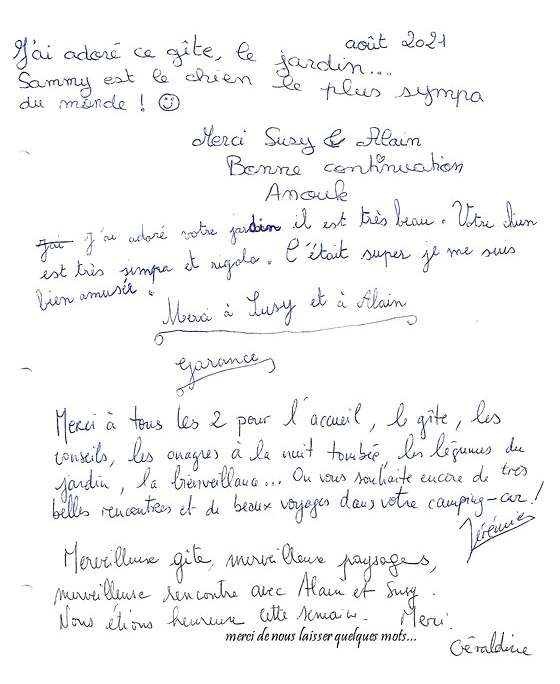 août 2021
J'ai adoré ce gîte, le jardin...
Sammy est le chien le plus sympa
du monde ! ☺
Merci Susy & Alain
Bonne continuation
Anouk
J'ai j'ai adoré votre jardin il est très beau. Votre chien
est très simpa et rigolo. C'était super je me suis
bien amusée.
Merci à Susy et à Alain
Garance
Merci à tous les 2 pour l'accueil, le gîte, les
conseils, les onagres à la nuit tombée, les légumes du
jardin, la bienveillance... On vous souhaite encore de très
belles rencontres et de beaux voyages dans votre camping-car !
Jérémie
Merveilleux gîte, merveilleux paysages,
merveilleuse rencontre avec Alain et Susy.
Nous étions heureux cette semaine. Merci.
merci de nous laisser quelques mots...
Géraldine